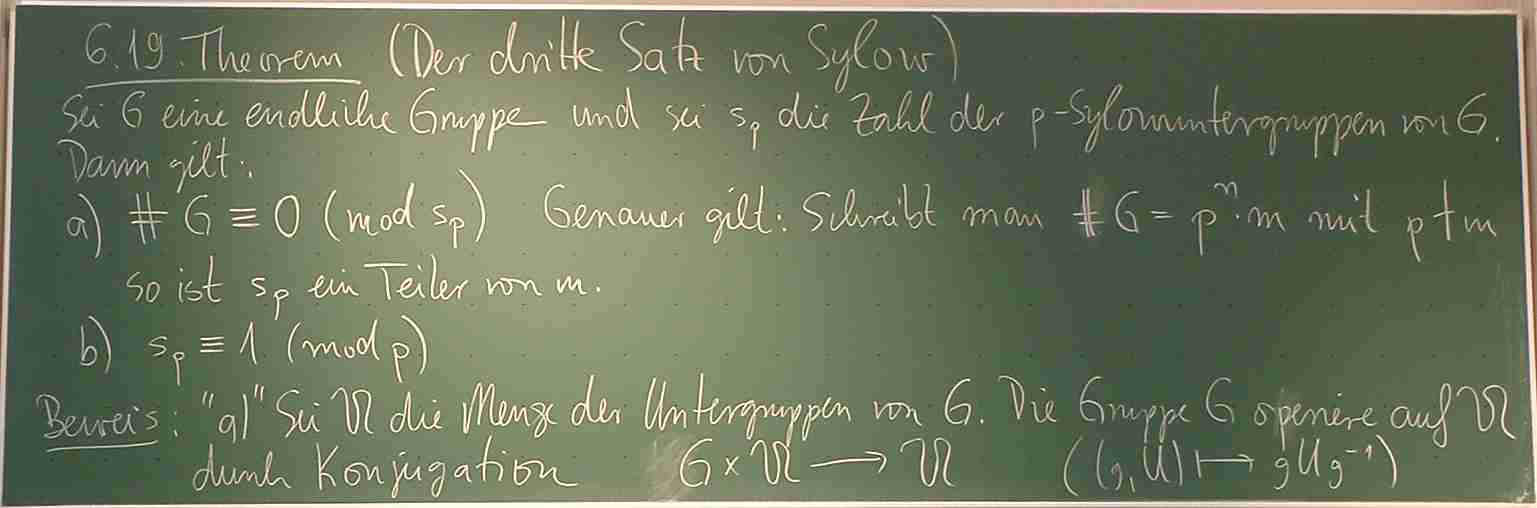 6.19. Theorem (Der dritte Satz von Sylow)
Sei G eine endliche Gruppe und sei s_p die Zahl der p-Sylowuntergruppen von G.
Dann gilt:
a) # G ≡ 0 (mod s_p) Genauer gilt: Schreibt man # G = p^n·m mit p∤m
so ist s_p ein Teiler von m.
b) s_p ≡ 1 (mod p)
Beweis: "a)" Sei 𝔐 die Menge der Untergruppen von G. Die Gruppe G operiere auf 𝔐
durch Konjugation G × 𝔐 ⟶ 𝔐 ((g,U) ↦ gUg⁻¹)